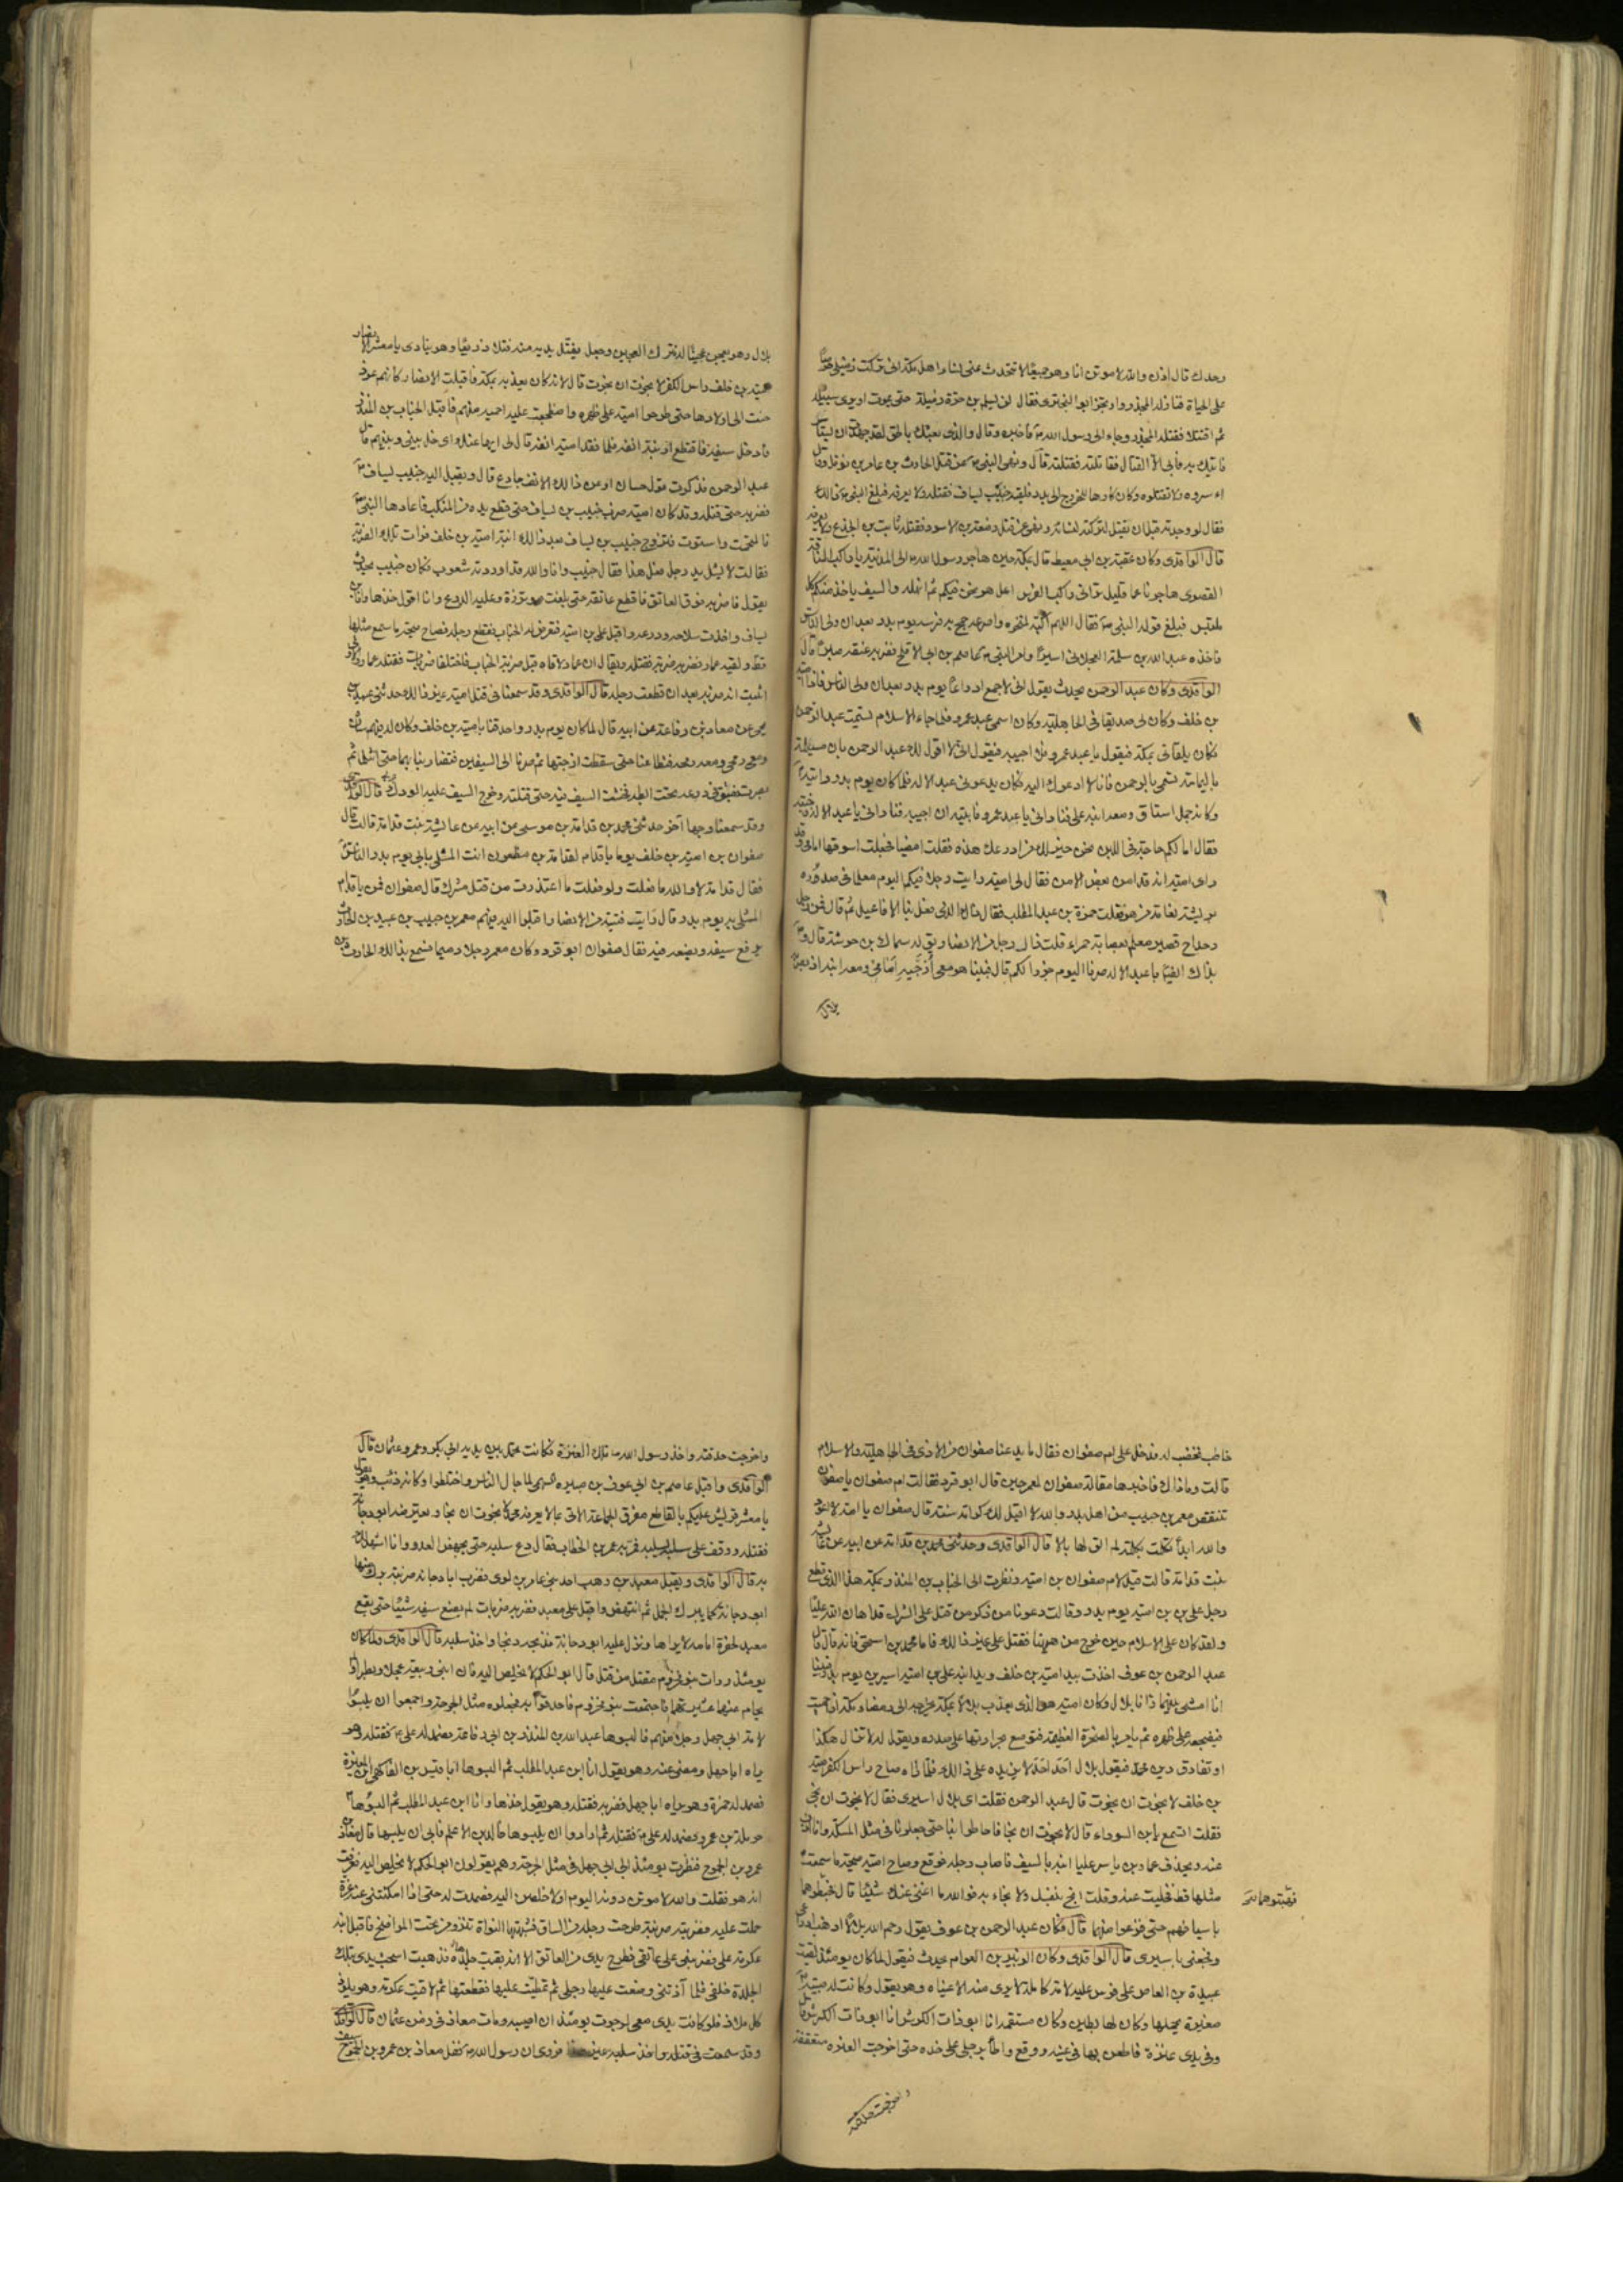 وحدك قال اذن والله لاموتن انا وهو جميعًا لا تتحدث عنى نساء اهل مكة انى تركت زميلى حرصًا
على الحياة فنازله المجذر وارتجز ابو البخترى فقال لن يسلم بن حرة زميله حتى يموت او يرى سبيله
ثم اقتتلا فقتله المجذر وجاء الى رسول الله ص فاخبره وقال والذى بعثك بالحق لقد جهدت ان يستاسر
فاتيك به فابى الا القتال فقاتلته فقتلته قال ونهى النبى ص عن قتل الحارث بن عامر بن نوفل وقال
اءسروه ولا تقتلوه وكان كارها للخروج الى بدر فلقيه خبيب بن يساف فقتله ولا يعرفه فبلغ النبى ص ذالك
فقال لو وجدته قبل ان يقتل لتركته لنسائه ونهى عن قتل زمعة بن الاسود فقتله ثابت بن الجذع ولا يعرفه
قال الواقدى وكان عقبة بن ابى معيط قال بمكة حين هاجر رسول الله ص الى المدينة يا راكب الناقة
القصوى هاجرنا عما قليل ترانى راكب الفرس اعل رمحى فيكم ثم انهله والسيف ياخذ منكم كل
ملتبس فبلغ قوله النبى ص فقال اللهم اكبه لمنخره واصرعه فجمح به فرسه يوم بدر بعد ان ولى الناس
فاخذه عبد الله بن سلمة العجلانى اسيرًا وامر النبى ص عاصم بن ابى الاقلح فضرب عنقه صبرًا قال
الواقدى وكان عبد الرحمن يحدث يقول انى لاجمع ادراعًا يوم بدر بعد ان ولى الناس فاذا امية
بن خلف وكان لى صديقا فى الجاهلية وكان اسمى عبد عمرو فلما جاء الاسلام تسميت عبد الرحمن
فكان يلقانى بمكة فيقول يا عبد عمرو فلا اجيبه فيقول انى لا اقول لك عبد الرحمن ان مسيلمة
باليمامة تسمى بالرحمن فانا لا ادعوك اليه فكان يدعونى عبد الاله فلما كان يوم بدر رايته
وكانه جمل يساق ومعه ابنه على فنادانى يا عبد عمرو فابيت ان اجيبه فنادانى يا عبد الاله فاجبته
فقال اما لكم حاجة فى اللبن نحن خير لك من ادرعك هذه فقلت امضيا فجعلت اسوقها امامى وقد
راى امية انه قد امن بعض الامن فقال لى امية رايت رجلا فيكم اليوم معلما فى صدره
بريشة نعامة من هو فقلت حمزة بن عبد المطلب فقال ذاك الذى فعل بنا الافاعيل ثم قال فمن رجل
دحداح قصير معلم بعصابة حمراء قلت ذاك رجل من الانصار يقال له سماك بن خرشة قال و
بذاك ايضًا يا عبد الاله صرنا اليوم جزرا لكم قال فبينا هو معى ازجيه امامى ومعه ابنه اذ بصر به
بلال
بلال وهو يعجن عجينًا له فترك العجين وجعل يفتل يديه منه فتلا ذريعًا وهو ينادى يا معشر الانصار
امية بن خلف راس الكفر لا نجوت ان نجوت قال لانه كان يعذبه بمكة فاقبلت الانصار كانهم عوذ
حنت الى اولادها حتى طرحوا امية على ظهره واضطجعت عليه احميه منهم فاقبل الحباب بن المنذر
فادخل سيفه فاقتطع ارنبة انفه فلما فقد امية انفه قال لى ايها عنك اى خل بينى وبينهم قال
عبد الرحمن فذكرت قول حسان او عن ذالك الانف جادع قال ويقبل اليه خبيب بن يساف
فضربه حتى قتله وقد كان امية ضرب خبيب بن يساف حتى قطع يده من المنكب فاعادها النبى ص
فالتحمت واستوت فتزوج خبيب بن يساف بعد ذالك ابنة امية بن خلف فرات تلك الضربة
فقالت لا يشل يد رجل فعل هذا فقال خبيب وانا والله قد اوردته شعوب فكان خبيب يحدث
يقول فاضربه فوق العاتق فاقطع عاتقه حتى بلغت موتزره وعليه الدرع وانا اقول خذها وانا ابن
يساف واخذت سلاحه ودرعه واقبل على بن امية فتعرض له الحباب فقطع رجله فصاح صيحة ما سمع مثلها
قط ولقيه عمار فضربه ضربة فقتله ويقال ان عمارا لاقاه قبل ضربة الحباب فاختلفا ضربات فقتله عمار والاول
اثبت انه ضربه بعد ان قطعت رجله قال الواقدى وقد سمعنا فى قتل امية غير ذالك حدثنى عبيد بن
يحيى عن معاذ بن رفاعة عن ابيه قال لما كان يوم بدر واحدقنا بامية بن خلف وكان له فيهم شان
ومعى رمحى ومعه رمحه فتطاعنا حتى سقطت ازجتها ثم صرنا الى السيفين فتضاربنا بهما حتى انثلما ثم
بصرت بفتق فى درعه تحت ابطه فخششت السيف فيه حتى قتلته وخرج السيف عليه الودك قال الواقدى
وقد سمعنا وجها آخر حدثنى محمد بن قدامة بن موسى عن ابيه عن عائشة بنت قدامة قالت قال
صفوان بن امية بن خلف يوما يا قدام لقدامة بن مظعون انت المشلى بابى يوم بدر الناس
فقال قدامة لا والله ما فعلت ولو فعلت ما اعتذرت من قتل مشرك قال صفوان فمن يا قدام
المشلى به يوم بدر قال رايت فتية من الانصار اقبلوا اليه فيهم معمر بن حبيب بن عبيد بن الحارث
يرفع سيفه ويضعه فيه فقال صفوان ابو قرد وكان معمر رجلا دميما فسمع بذالك الحارث بن
حاطب فغضب له فدخل على ام صفوان فقال ما يدعنا صفوان من الاذى فى الجاهلية والاسلام
قالت وما ذاك فاخبرها مقالة صفوان لمعمر حين قال ابو قرد فقالت ام صفوان يا صفوان
تنتقص معمر بن حبيب من اهل بدر والله لا اقبل لك كرامة سنة قال صفوان يا امه لا اعود
والله ابدا تكلمت بكلمة لم الق لها بالا قال الواقدى وحدثنى محمد بن قدامة عن ابيه عن عائشة
بنت قدامة قالت قيل لام صفوان بن امية ونظرت الى الحباب بن المنذر بمكة هذا الذى قطع
رجل على بن امية يوم بدر وقالت دعونا من ذكر من قتل على الشرك قد اهان الله عليا
ولقد كان على الاسلام حين خرج من هيهنا فقتل على غير ذالك فاما محمد بن اسحق فانه قال قال
عبد الرحمن بن عوف اخذت بيد امية بن خلف ويد ابنه على بن امية اسيرين يوم بدر فبينا
انا امشى بينهما اذ رانا بلال وكان امية هو الذى يعذب بلالا بمكة يخرجه الى رمضاء مكة اذا حميت
فيضجعه على ظهره ثم يامر بالصخرة العظيمة فتوضع بحرارتها على صدره ويقول له لا تزال هكذا
او تفارق دين محمد فيقول بلال احد احد لا يزيده على ذالك فلما راه صاح راس الكفر امية
بن خلف لا نجوت ان نجوت قال عبد الرحمن فقلت اى بلال اسيرى فقال لا نجوت ان نجى
فقلت اتسمع يا ابن السوداء قال لا نجوت ان نجا فاحاطوا بنا حتى جعلونا فى مثل المسكة وانا اذب
عنه ويحذف عمار بن ياسر عليا ابنه بالسيف فاصاب رجله فوقع وصاح امية صيحة ما سمعت
مثلها قط فخليت عنه وقلت انج بنفسك ولا نجاء به فوالله ما اغنى عنك شيئًا قال فهبطوهما
فهبتوهما
باسيافهم حتى فرغوا منهما قال فكان عبد الرحمن بن عوف يقول رحم الله بلالا اذهب ادراعى
وفجعنى باسيرى قال الواقدى وكان الزبير بن العوام يحدث فيقول لما كان يومئذ لقيت
عبيدة بن العاص على فرس عليه لامة كاملة لا يرى منه الا عيناه وهو يقول وكانت له صبية
صغيرة يحملها وكان لها بطين وكان مستقمه انا ابو ذات الكرش انا ابو ذات الكرش قال
وفى يدى عنزة فاطعن بها فى عينه ووقع واطأ برجلى على خده حتى اخرجت العنزه متعقفة
واخرجت حدقته
واخرجت حدقته واخذ رسول الله ص تلك العنزة فكانت تحمل بين يديه ابى بكر وعمر وعثمان قال
الواقدى واقبل عاصم بن ابى عوف بن صبيره السهمى لما جال الناس واختلطوا وكانه ذئب وهو يقول
يا معشر قريش عليكم بالقاطع مفرق الجماعة الاتى بما لا يعرف محمد لا نجوت ان نجا ويعترضه ابو دجانة
فقتله ووقف على سلبه يسلبه فمر به عمر بن الخطاب فقال دع سلبه حتى يجهض العدو وانا اشهد لك
به قال الواقدى ويقبل معبد بن وهب احد بنى عامر بن لوى فضرب ابا دجانة ضربة برك منها
ابو دجانة كما يبرك الجمل ثم انتهض واقبل على معبد فضربه ضربات لم يصنع سيفه شيئًا حتى يقع
معبد لحفرة امامه لا يراها ونزل عليه ابو دجانة فذبحه ذبحا واخذ سلبه قال الواقدى ولما كان
يومئذ ورات بنو مخزوم مقتل من قتل قال ابو الحكم لا يخلص اليه فان ابنى ربيعة عجلا وبطرا ولم
يحام عنهما عشيرتهما فاجتمعت بنو مخزوم فاحدقوا به فجعلوه مثل الحرجة واجمعوا ان يلبسوا
لامة ابى جهل رجلا منهم فالبسوها عبد الله بن المنذر بن ابى رفاعة فصمد له على ع فقتله وهو
يراه ابا جهل ومضى عنه وهو يقول انا ابن عبد المطلب ثم البسوها ابا قيس بن الفاكه بن المغيرة
فصمد له حمزة وهو يراه ابا جهل فضربه فقتله وهو يقول خذها وانا ابن عبد المطلب ثم البسوها
حرملة بن عمرو فصمد له على ع فقتله ثم ارادوا ان يلبسوها خالد بن الاعلم فابى ان يلبسها قال معاذ بن
عمرو بن الجموح فنظرت يومئذ الى ابى جهل فى مثل الحرجة وهم يقولون ابو الحكم لا يخلص اليه فعرفت
انه هو فقلت والله لاموتن دونه اليوم او لاخلصن اليه فصمدت له حتى اذا امكنتنى منه غرة
حملت عليه فضربته ضربة طرحت رجله من الساق فشبهتها النواة تنزو من تحت المراضخ فاقبل ابنه
عكرمة على فضربنى على عاتقى فطرح يدى من العاتق الا انه بقيت جلدة فذهبت اسحب يدى بتلك
الجلدة خلفى فلما آذتنى وضعت عليها رجلى ثم تمطيت عليها فقطعتها ثم لاقيت عكرمة وهو يلوذ
كل ملاذ فلو كانت يدى معى لرجوت يومئذ ان اصيبه ومات معاذ فى زمن عثمان قال الواقدى
وقد سمعت فى قتله واخذ سلبه غير هذا فروى ان رسول الله ص نفل معاذ بن عمرو بن الجموح سيف